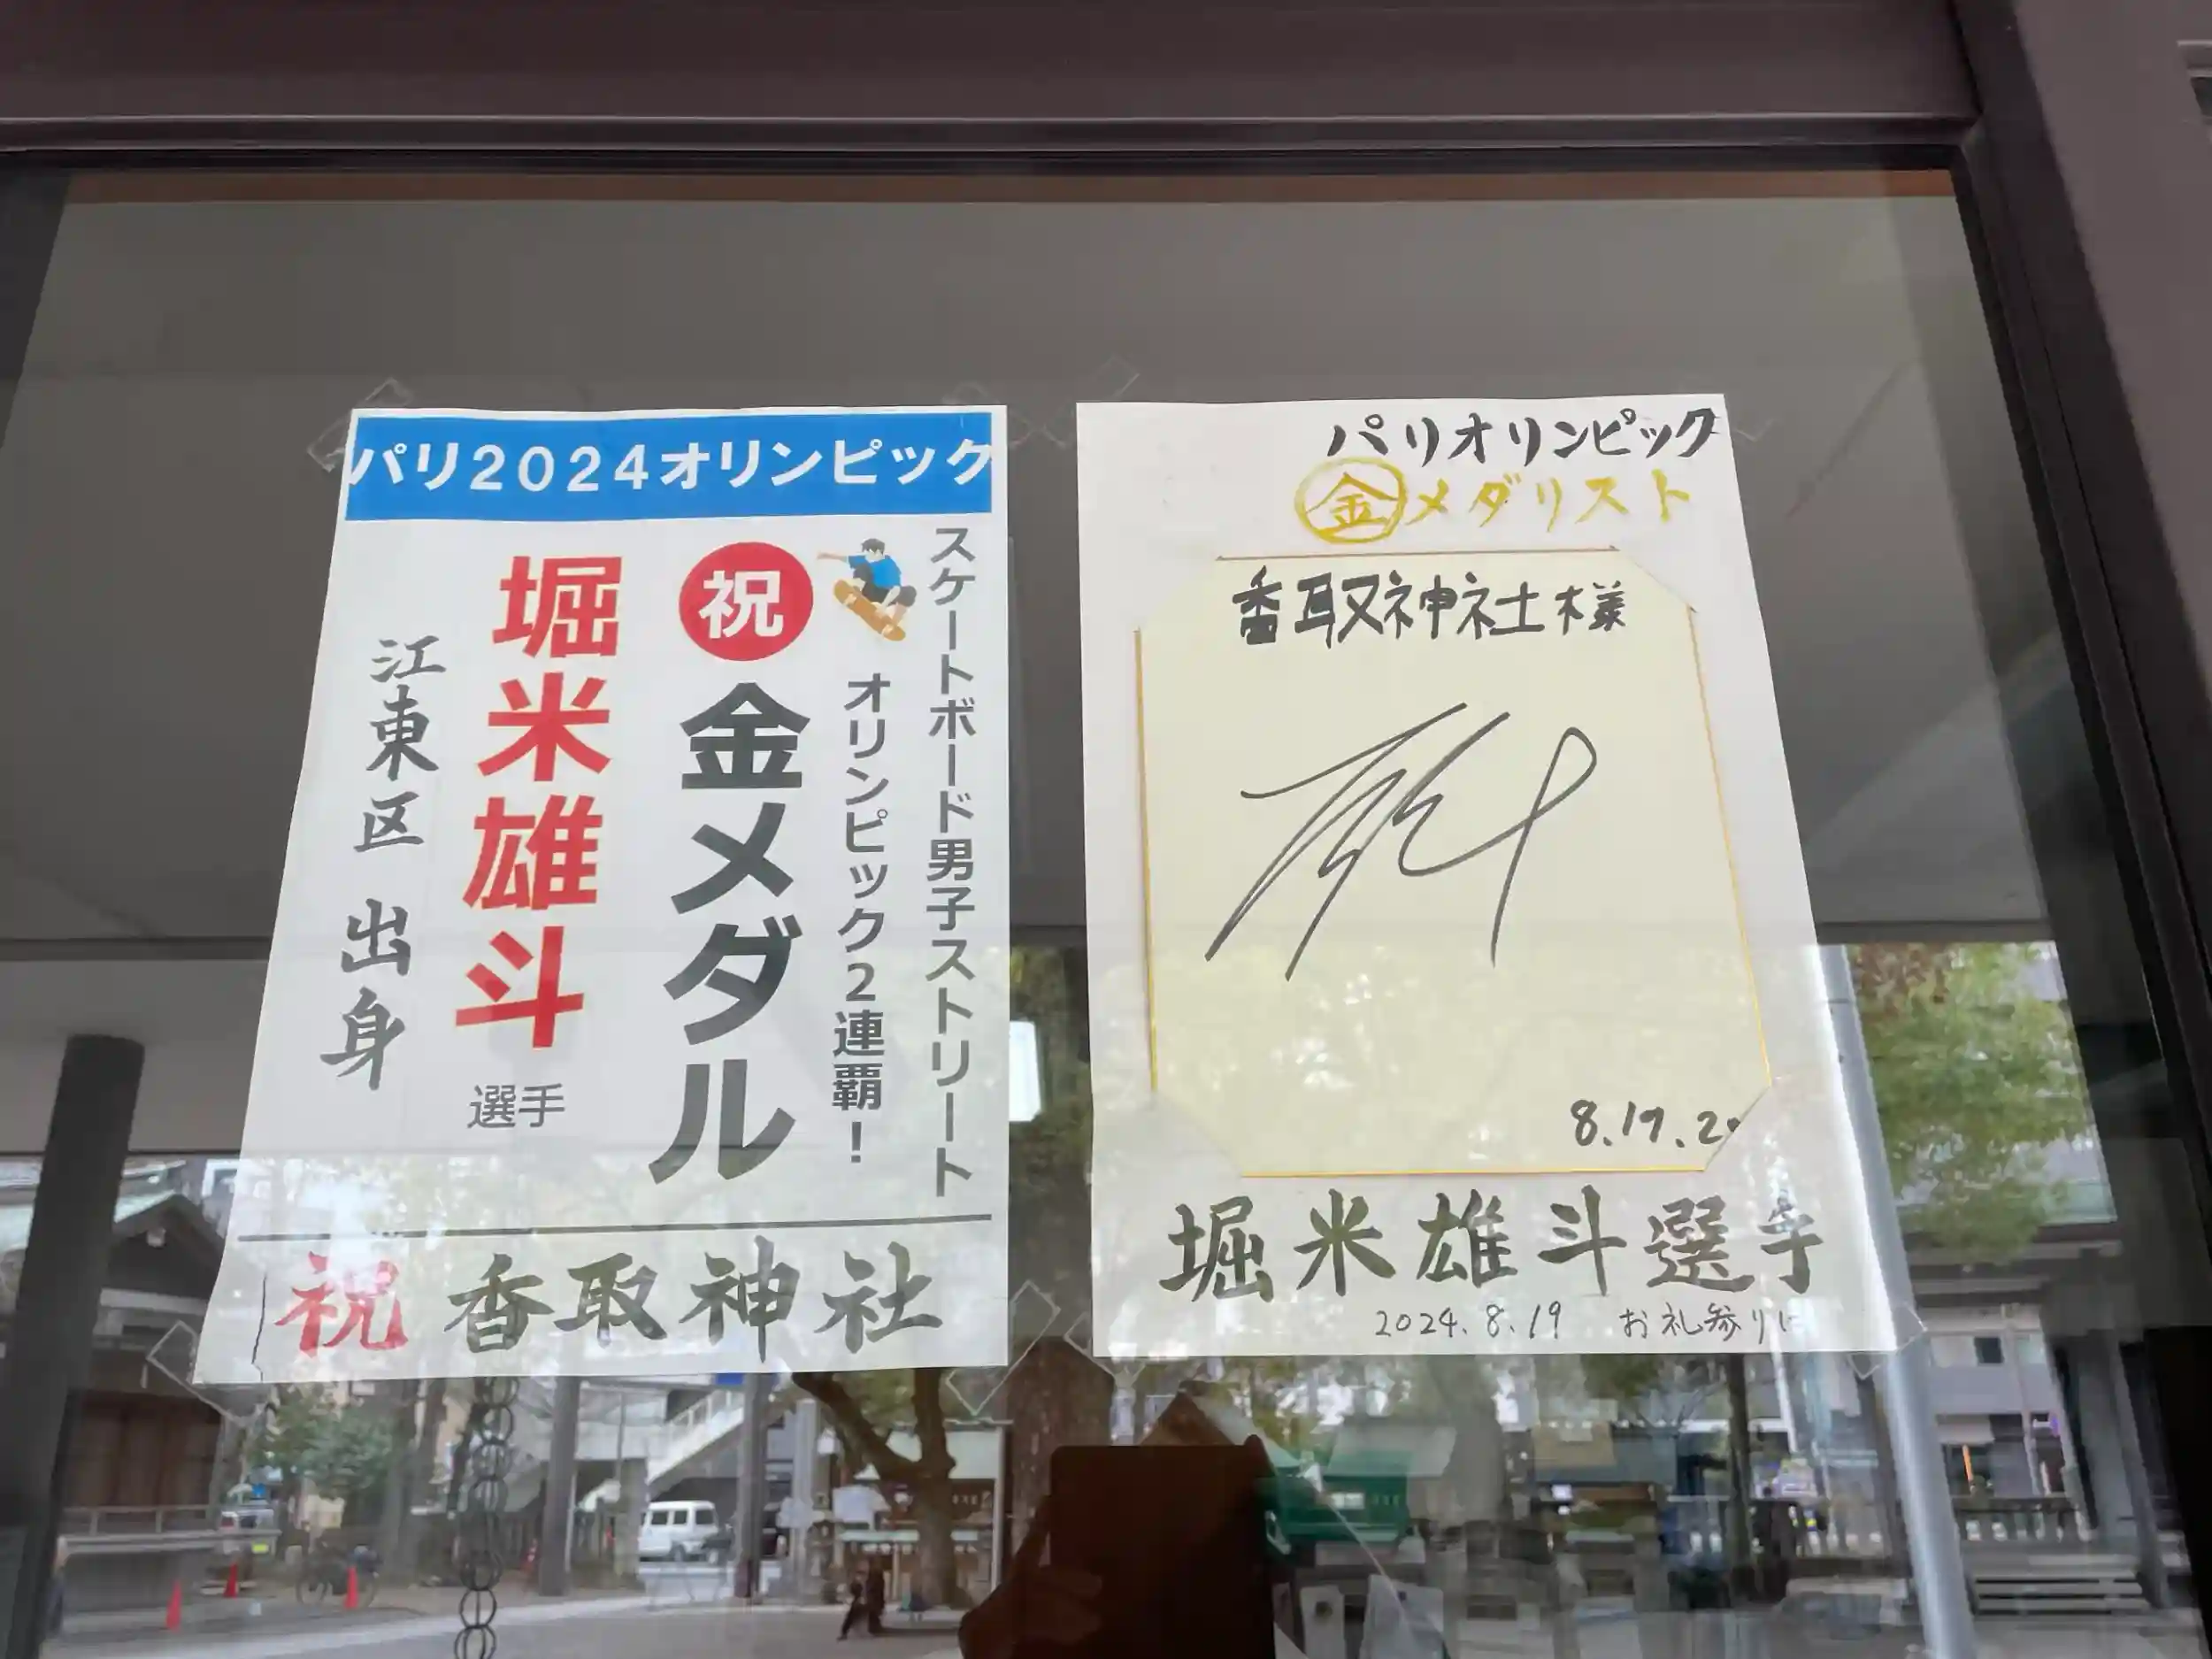 パリ2024オリンピック
スケートボード男子ストリート
オリンピック2連覇！
祝
金メダル
堀米雄斗
選手
江東区 出身
祝 香取神社
パリオリンピック
金メダリスト
香取神社様
8.19.2
堀米雄斗選手
2024.8.19 お礼参りに